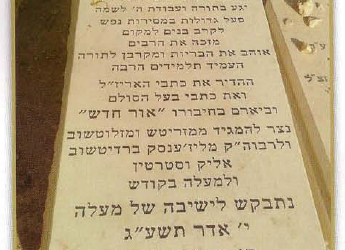 יגע בתורה ועבודת ה' לשמה
פעל גדולות במסירות נפש
לקרב בנים למקום
מזכה את הרבים
אוהב את הבריות ומקרבן לתורה
העמיד תלמידים הרבה
ההדיר את כתבי האריז"ל
ואת כתבי בעל הסולם
וביארם בחיבורו "אור חדש"
נצר להמגיד ממזריטש ומזלוטשוב
ולרבוה"ק מליז'ענסק ברדיטשוב
אליק וסטרטין
ולמעלה בקודש
נתבקש לישיבה של מעלה
י' אדר תשע"ג